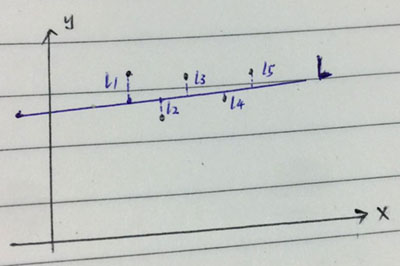 y
l1 l3 l5 L
l2 l4
x